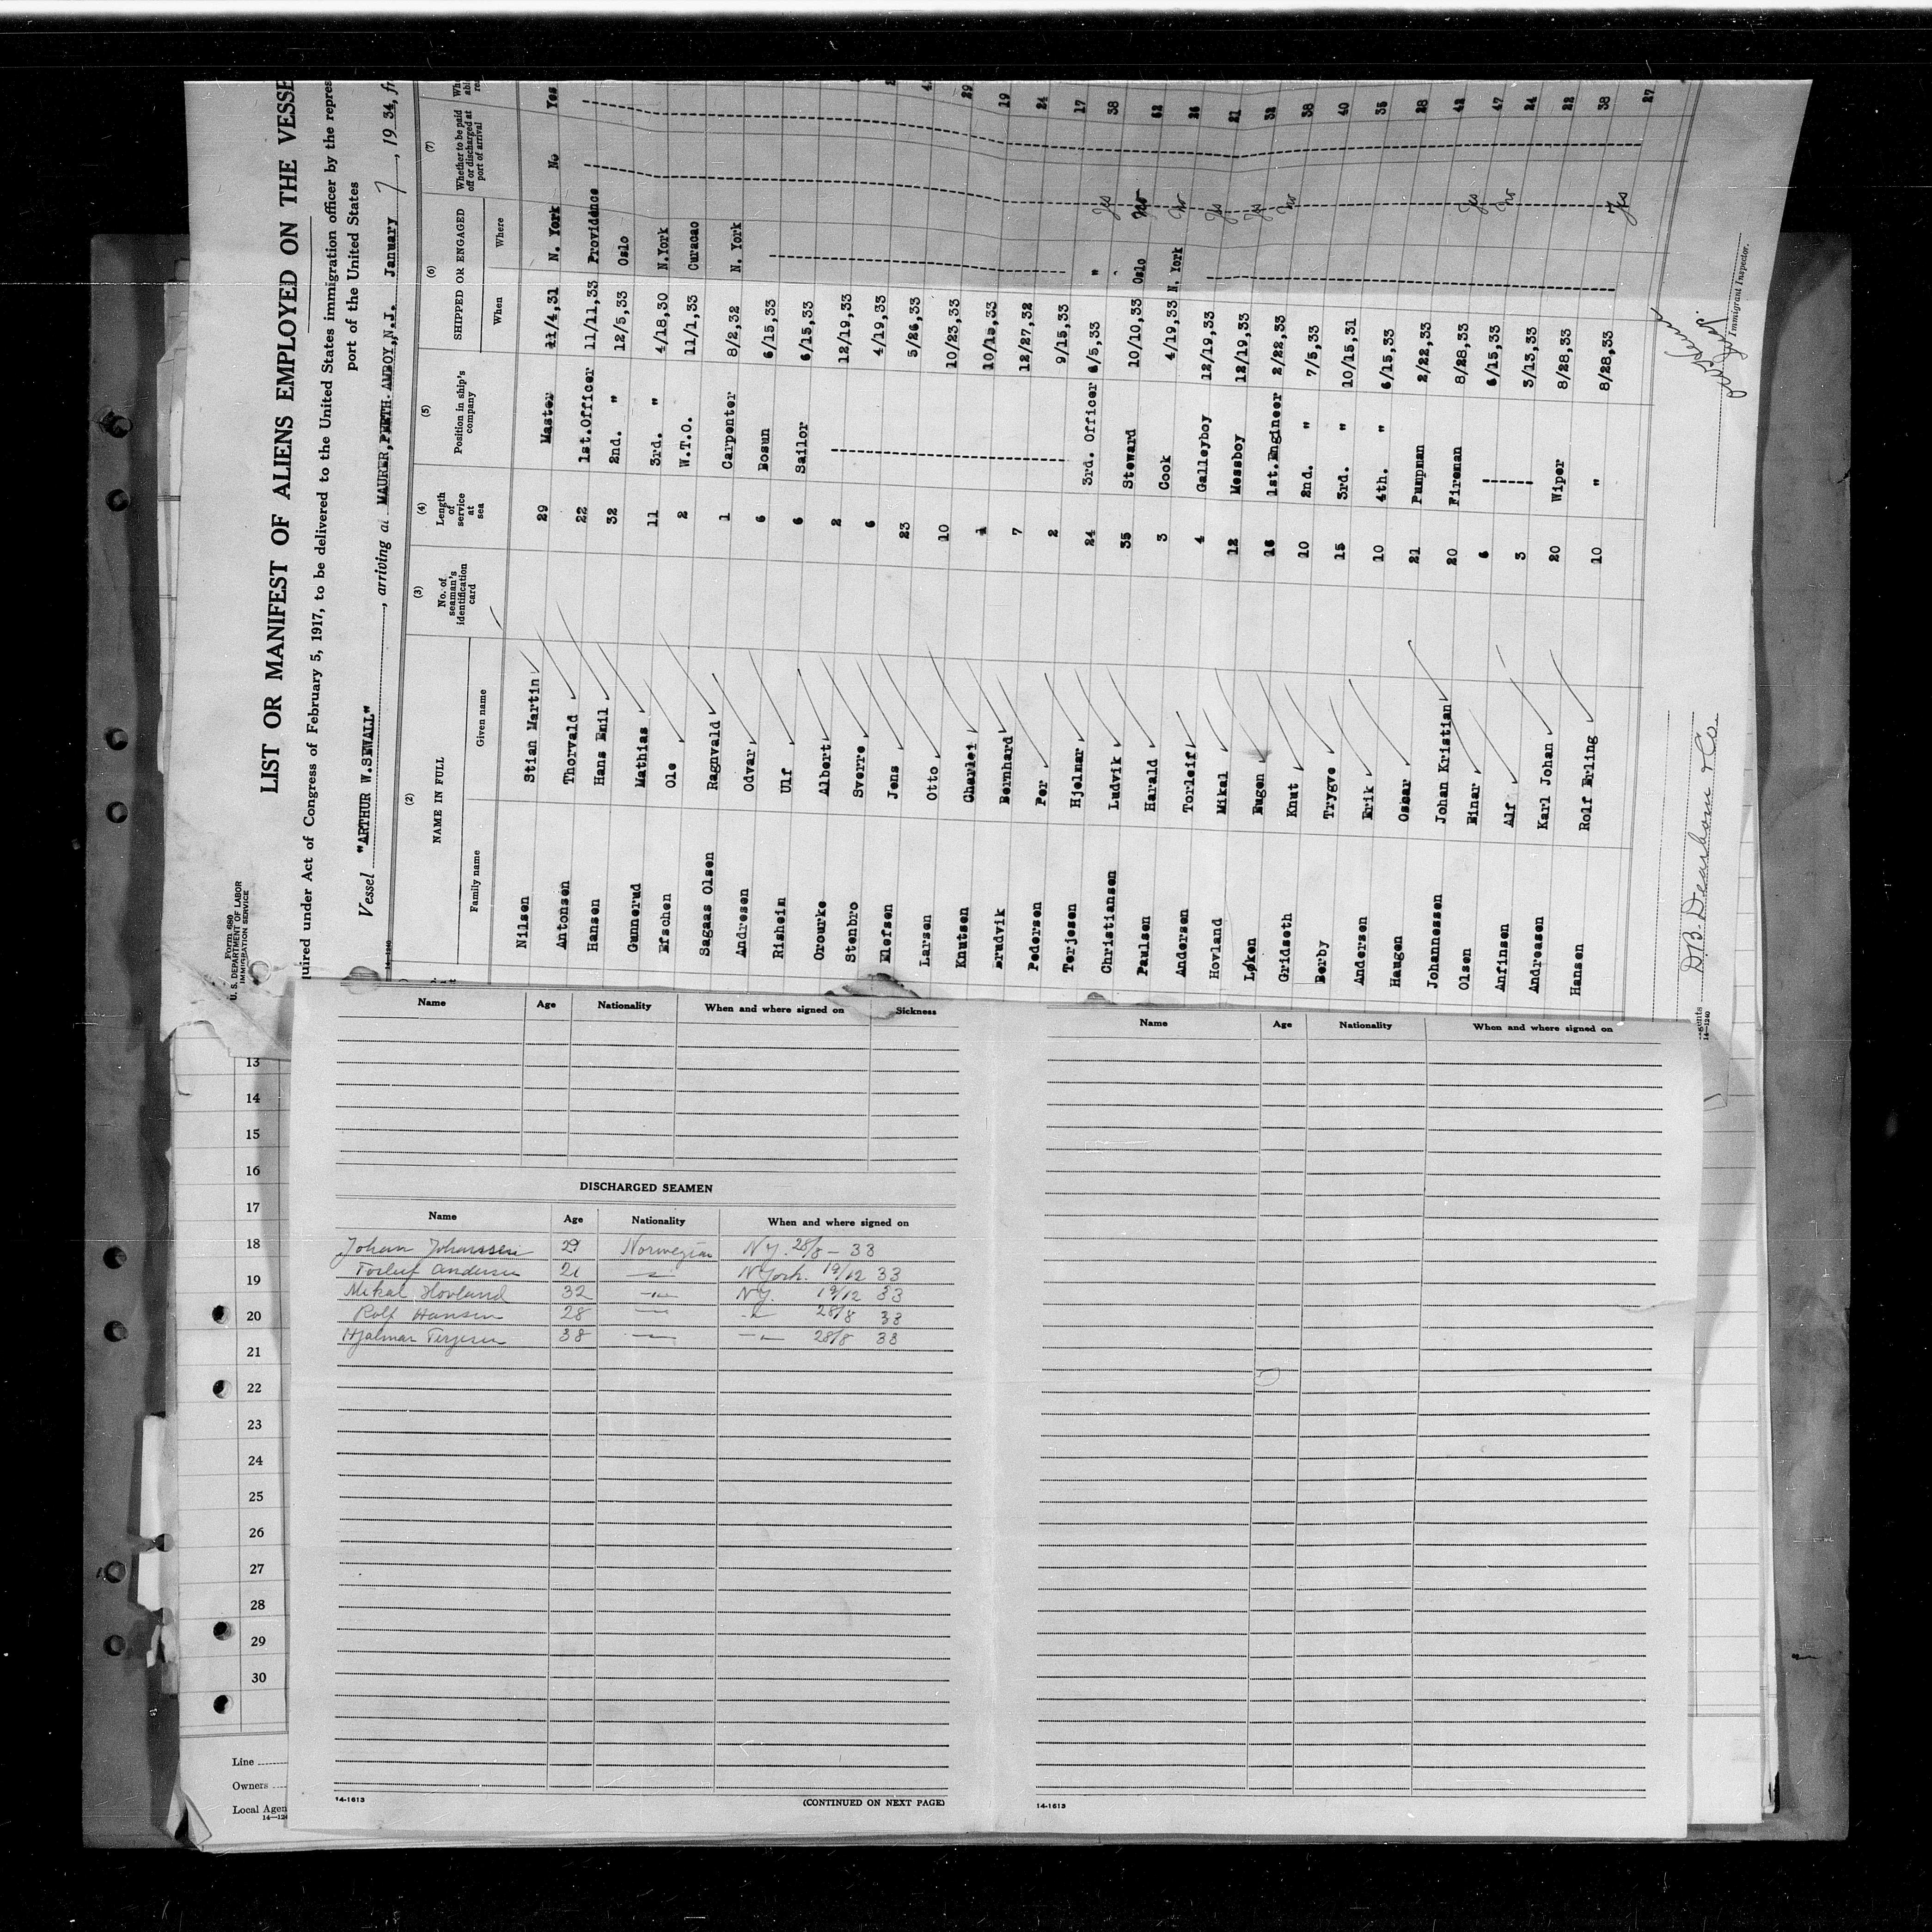 Form 680
U. S. DEPARTMENT OF LABOR
IMMIGRATION SERVICE
LIST OR MANIFEST OF ALIENS EMPLOYED ON THE VESSE
uired under Act of Congress of February 5, 1917, to be delivered to the United States immigration officer by the repres
port of the United States
Vessel "ARTHUR W.SEWALL", arriving at MAURER, PERTH-AMBOY, N.J. January 7, 1934, fr
14-1240
(2) (3) (4) (5) (6) (7)
NAME IN FULL No. of seaman's identification card Length of service at sea Position in ship's company SHIPPED OR ENGAGED Whether to be paid off or discharged at port of arrival
Family name Given name When Where
Nilsen Stian Martin 29 Master 11/4,31 N. York No Yes
Antonsen Thorvald 22 1st.Officer 11/11,33 Providence
Hansen Hans Emil 32 2nd. " 12/5,33 Oslo
Gunnerud Mathias 11 3rd. " 4/18,30 N.York
Efschen Ole 2 W.T.O. 11/1,33 Curacao
Sagaas Olsen Ragnvald 1 Carpenter 8/2,32 N. York
Andresen Odvar 6 Bosun 6/15,33
Risheim Ulf 6 Sailor 6/15,33
Orourke Albert 2 12/19,33
Stenbro Sverre 6 4/19,33
Elefsen Jens 23 5/26,33
Larsen Otto 10 10/23,33 29
Knutsen Charlei 1 10/15,33 19
Brudvik Bernhard 7 12/27,32 24
Pedersen Per 2 9/15,33 17
Terjesen Hjelmar 24 3rd. Officer 6/5,33 " Yes 38
Christiansen Ludvik 35 Steward 10/10,33 Oslo No 52
Paulsen Harald 3 Cook 4/19,33 N. York No 26
Andersen Torleif 4 Galleyboy 12/19,33 Yes 21
Hovland Mikal 12 Messboy 12/19,33 Yes 32
Løken Eugen 16 1st.Engineer 2/22,33 No 38
Gridseth Knut 10 2nd. " 7/5,33 40
Berby Trygve 15 3rd. " 10/15,31 35
Andersen Erik 10 4th. " 6/15,33 28
Haugen Oscar 21 Pumpman 2/22,33 42
Johannessen Johan Kristian 20 Fireman 8/28,33 Yes 47
Olsen Einar 6 6/15,33 No 24
Anfinsen Alf 3 3/13,33 22
Andreasen Karl Johan 20 Wiper 8/28,33 38
Hansen Rolf Erling 10 " 8/28,33 Yes 27
D.B. Dearborn & Co.
gents
14-1240
Immigrant Inspector.
Name Age Nationality When and where signed on Sickness
DISCHARGED SEAMEN
Name Age Nationality When and where signed on
Johan Johanssen 29 Norwegian N.Y. 28/8 - 33
Torleif Andersen 21 -"- N York. 19/12 33
Mikal Hovland 32 -"- N.Y. 19/12 33
Rolf Hansen 28 -"- -"- 28/8 33
Hjalmar Terjesen 38 -"- -"- 28/8 33
14-1613
(CONTINUED ON NEXT PAGE)
Name Age Nationality When and where signed on
14-1613
13
14
15
16
17
18
19
20
21
22
23
24
25
26
27
28
29
30
Line
Owners
Local Agen
14-124